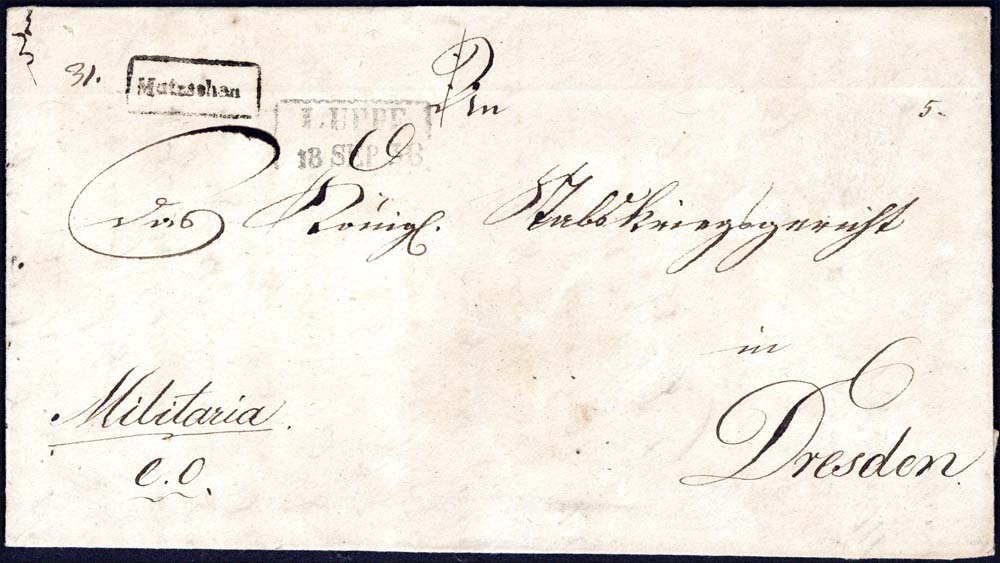 31.
Mutzschen
LUPPE
18 SEP 38
An
5.
das Königl. Stabskriegsgericht
in
Dresden.
Militaria.
e.o.